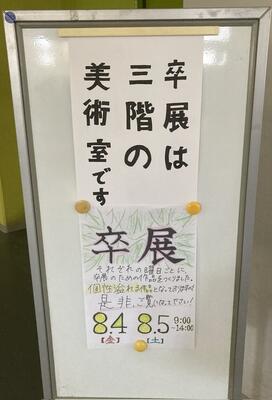 卒展は
三階の
美術室です
卒展
それぞれの曜日ごとに、
卒展のための作品をつくりました。
個性溢れる作品となっておりますので
是非、ご覧になって下さい!
8.4 8.5 9:00~14:00
【金】 【土】